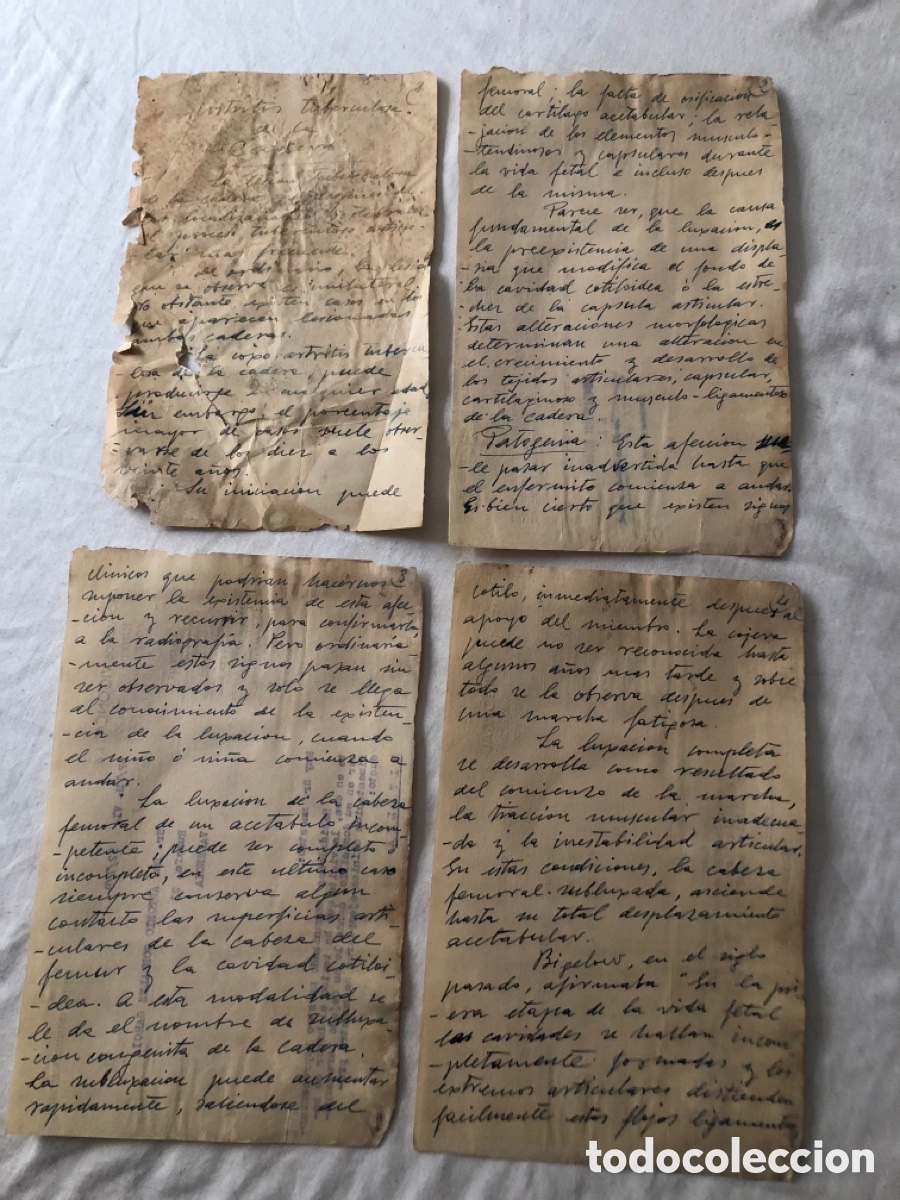 Ostortitis tuberculosa
de la
Cadera
la cadera
el proceso tuberculoso
mas frecuente.
De ordinario, la lesion
que se observa es unilateral.
No obstante existen casos en los
que aparecen lesionadas
ambas caderas.
La coxo-artritis tubercu
losa de la cadera, puede
producirse en cualquier edad.
Sin embargo, el porcentaje
mayor de casos suele obser
-varse de los diez a los
veinte años.
Su iniciacion puede
2
femoral; la falta de osificacion
del cartilago acetabular; la rela
-jacion de los elementos musculo-
-tendinosos y capsulares durante
la vida fetal e incluso despues
de la misma.
Parece ser, que la causa
fundamental de la luxacion, es
la preexistencia de una displa
-sia que modifica el fondo de
la cavidad cotiloidea ó la estre-
chez de la capsula articular.
Estas alteraciones morfologicas
determinan una alteracion en
el crecimiento y desarrollo de
los tejidos articulares, capsular,
cartilaginoso y musculo-ligamentoso
de la cadera.
Patogenia: Esta afeccion sue
-le pasar inadvertida hasta que
el enfermito comienza a andar.
Si bien cierto que existen signos
3
clinicos que podrian hacernos
suponer la existencia de esta afec
-cion y recurrir, para confirmarla,
a la radiografía. Pero ordinaria
-mente estos signos pasan sin
ser observados y solo se llega
al conocimiento de la existen-
cia de la luxacion, cuando
el niño ó niña comienza a
andar.
La luxacion de la cabeza
femoral de un acetabulo incom
-petente; puede ser completo ó
incompleto, en este ultimo caso
siempre conserva algun
contacto las superficias arti
-culares de la cabeza del
femur y la cavidad cotiloi
-dea. A esta modalidad se
le da el nombre de subluxa
-cion congenita de la cadera.
La subluxacion puede aumentar
rapidamente, saliendose del
4
cotilo, inmediatamente despues al
apoyo del miembro. La cojera
puede no ser reconocida hasta
algunos años mas tarde y sobre
todo se la observa despues de
una marcha fatigosa.
La luxacion completa
se desarrolla como resultado
del comienzo de la marcha,
la traccion muscular inadecua
-da y la inestabilidad articular.
En estas condiciones, la cabeza
femoral subluxada, asciende
hasta su total desplazamiento
acetabular.
Bigelow, en el siglo
pasado, afirmaba "En la pri
-era etapa de la vida fetal
las cavidades se hallan incom
-pletamente formadas y los
extremos articulares distienden
facilmente estos flojos ligamentos
todocoleccion.net